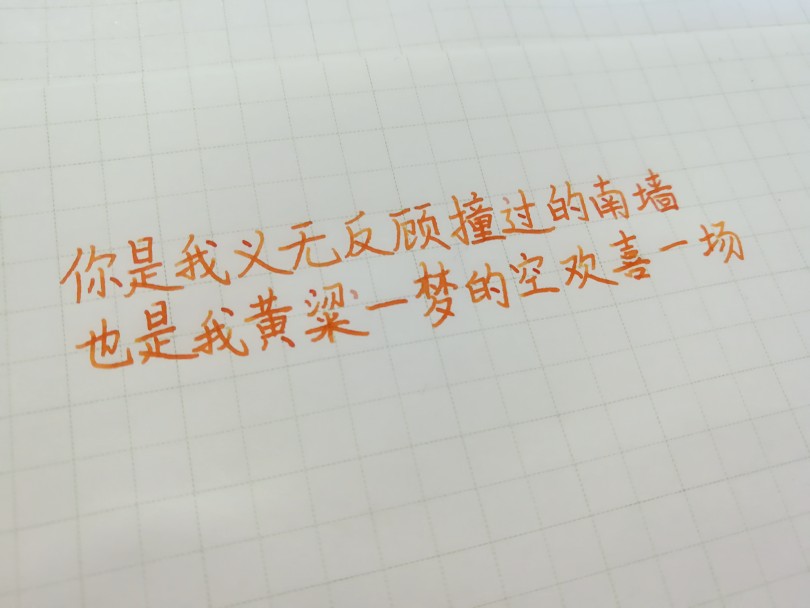 你是我义无反顾撞过的南墙
也是我黄粱一梦的空欢喜一场